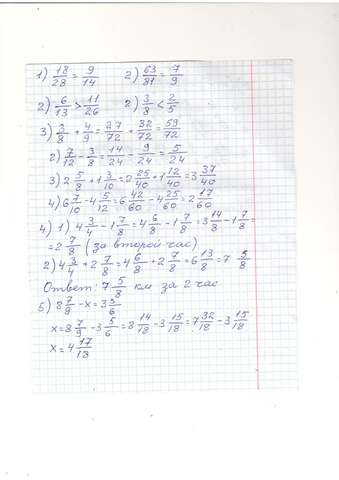 1) 18/28 = 9/14   2) 63/81 = 7/9
2) 6/13 > 11/26   2) 3/8 < 2/5
3) 3/8 + 4/9 = 27/72 + 32/72 = 59/72
2) 7/12 - 3/8 = 14/24 - 9/24 = 5/24
3) 2 5/8 + 1 3/10 = 2 25/40 + 1 12/40 = 3 37/40
4) 6 7/10 - 4 5/12 = 6 42/60 - 4 25/60 = 2 17/60
4) 1) 4 3/4 - 1 7/8 = 4 6/8 - 1 7/8 = 3 14/8 - 1 7/8 =
= 2 7/8 (за второй час)
2) 4 3/4 + 2 7/8 = 4 6/8 + 2 7/8 = 6 13/8 = 7 5/8
Ответ: 7 5/8 км за 2 час
5) 8 7/9 - x = 3 5/6
x = 8 7/9 - 3 5/6 = 8 14/18 - 3 15/18 = 7 32/18 - 3 15/18
x = 4 17/18